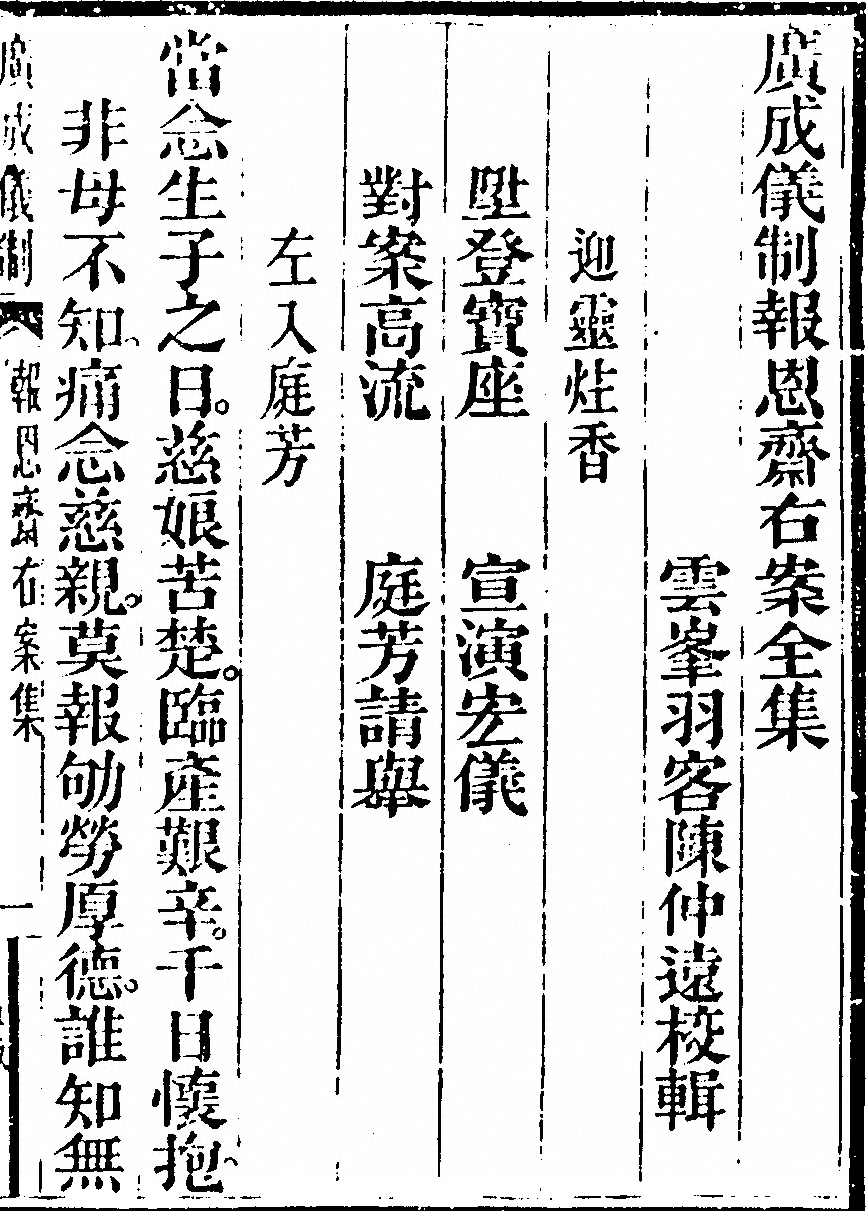 廣成儀制報恩齋右案全集
雲峯羽客陳仲遠校輯
迎靈炷香
陞登寶座　宣演宏儀
對案高流　庭芳請舉
左入庭芳
當念生子之日。慈娘苦楚。臨產艱辛。千日懷抱、
非母不知、痛念慈親。莫報劬勞厚德。誰知無
廣成儀制　報恩齋右案集　一